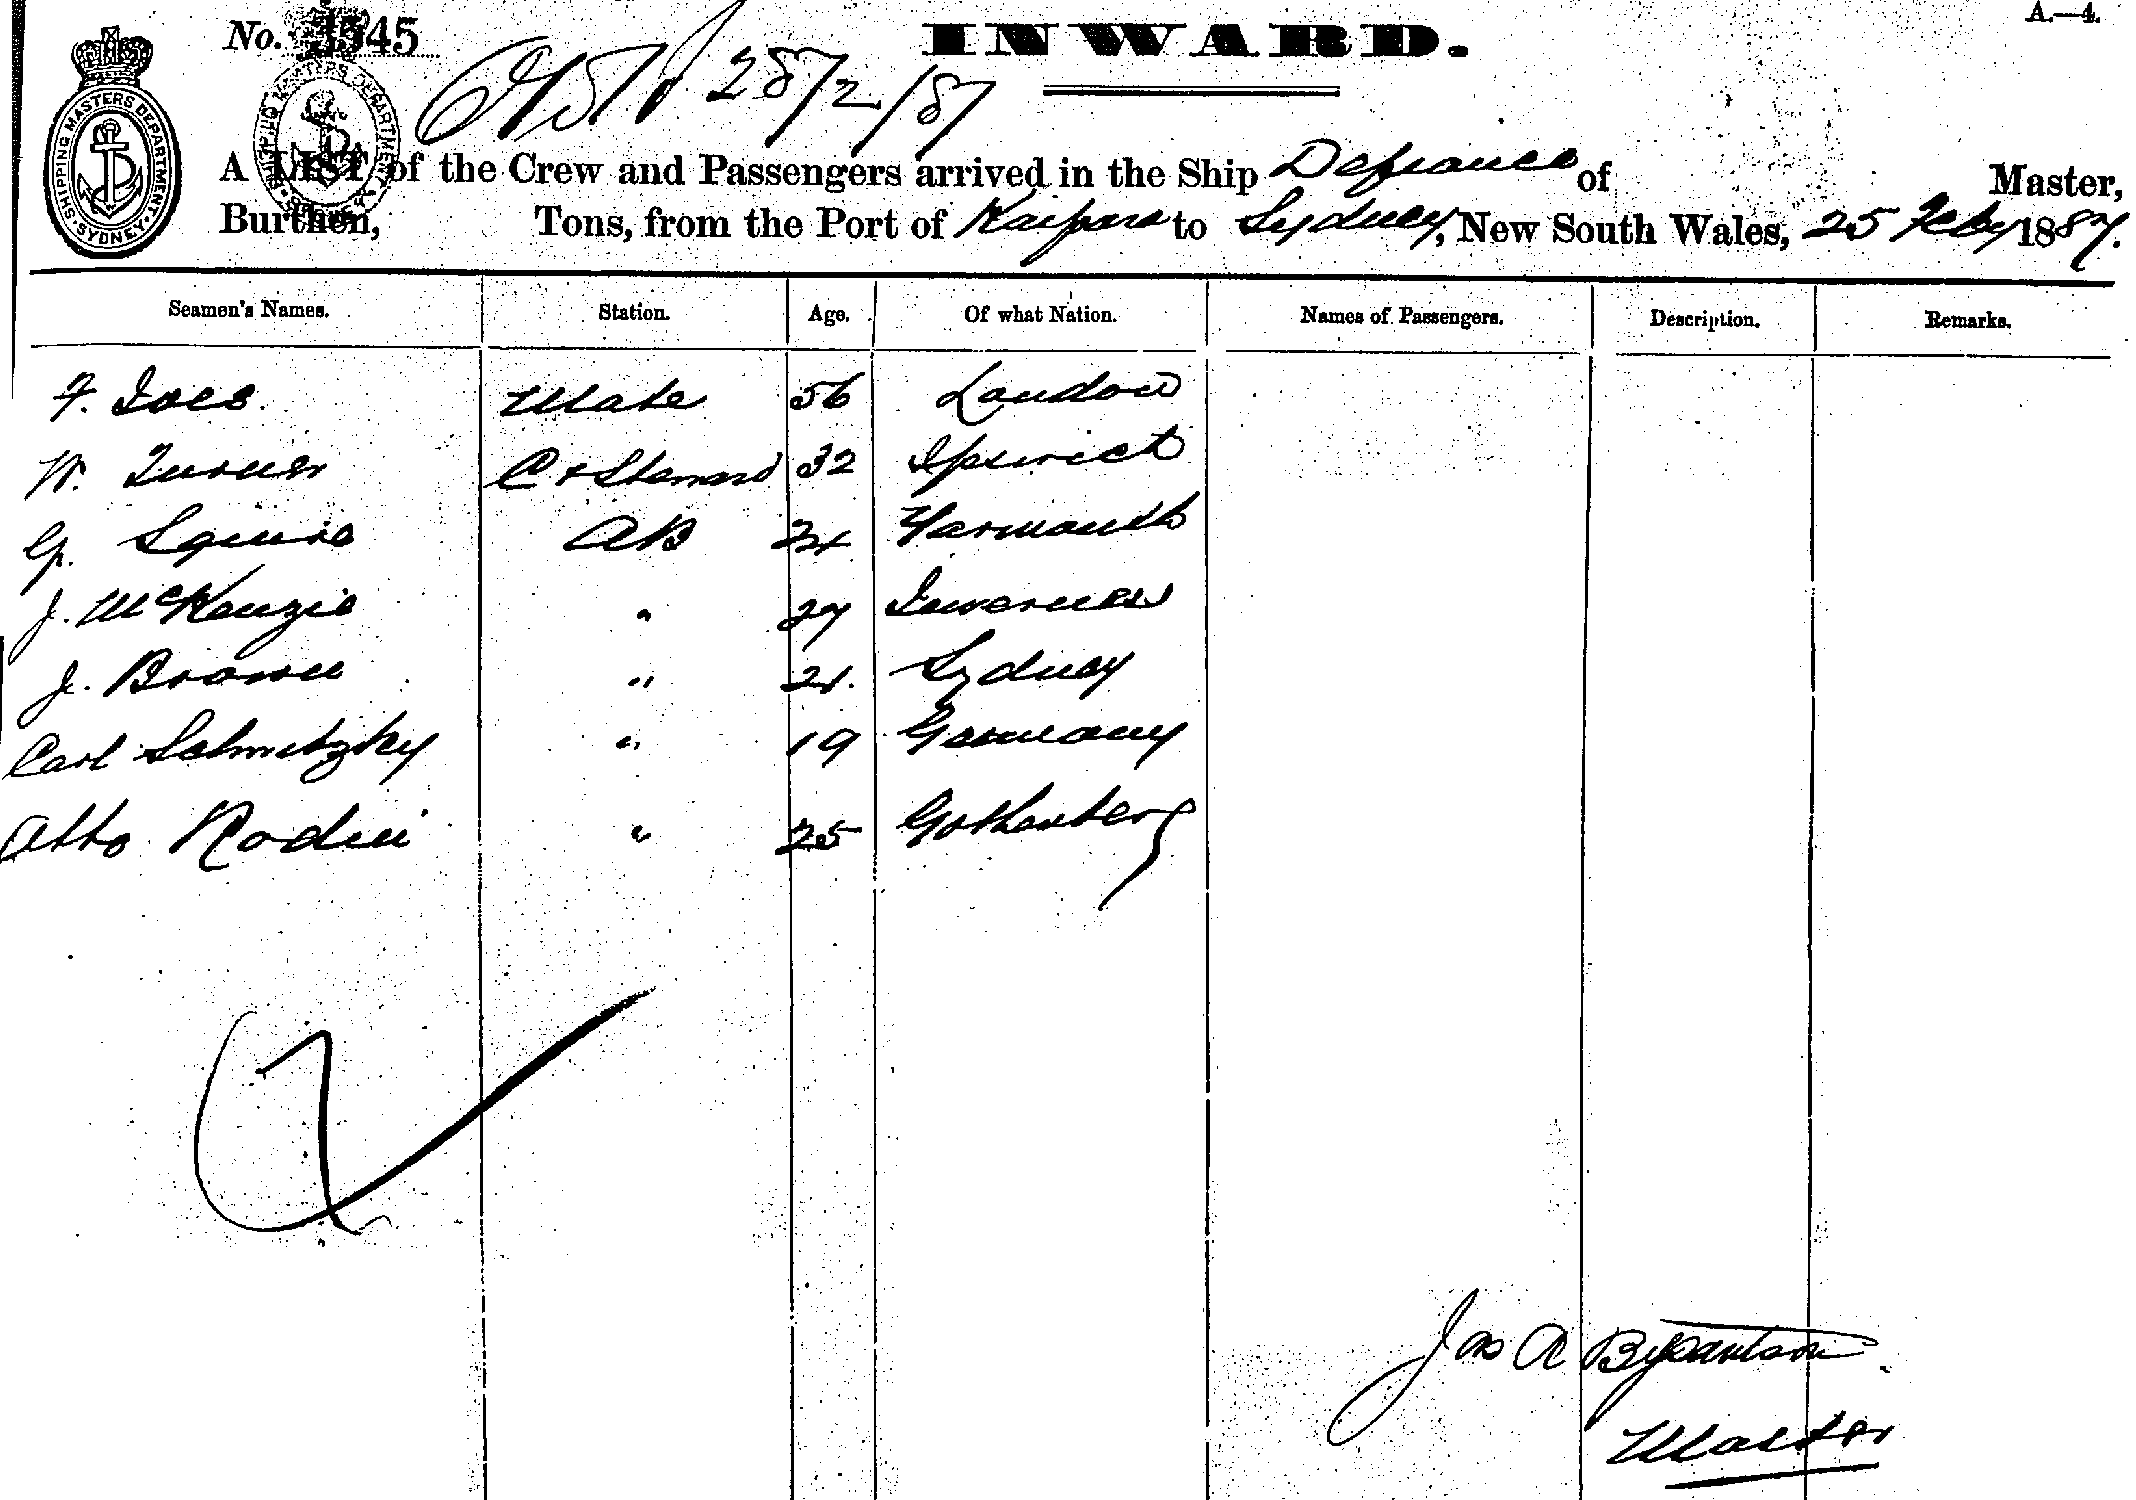 A.—4.
No. 1545
INWARD.
28/2/87
SHIPPING MASTERS DEPARTMENT · SYDNEY ·
A LIST of the Crew and Passengers arrived in the Ship Defiance of Master,
Burthen, Tons, from the Port of Kaipara to Sydney, New South Wales, 25 Feby 1887.
Seamen's Names. Station. Age. Of what Nation. Names of Passengers. Description. Remarks.
F. Ives Mate 56 London
W. Turner C & Steward 32 Ipswich
G. Squire AB 24 Yarmouth
J. McKenzie " 27 Inverness
J. Brown " 21. Sydney
Carl " 19 Germany
Otto Rodin " 25 Gothenberg
Jas A
Master